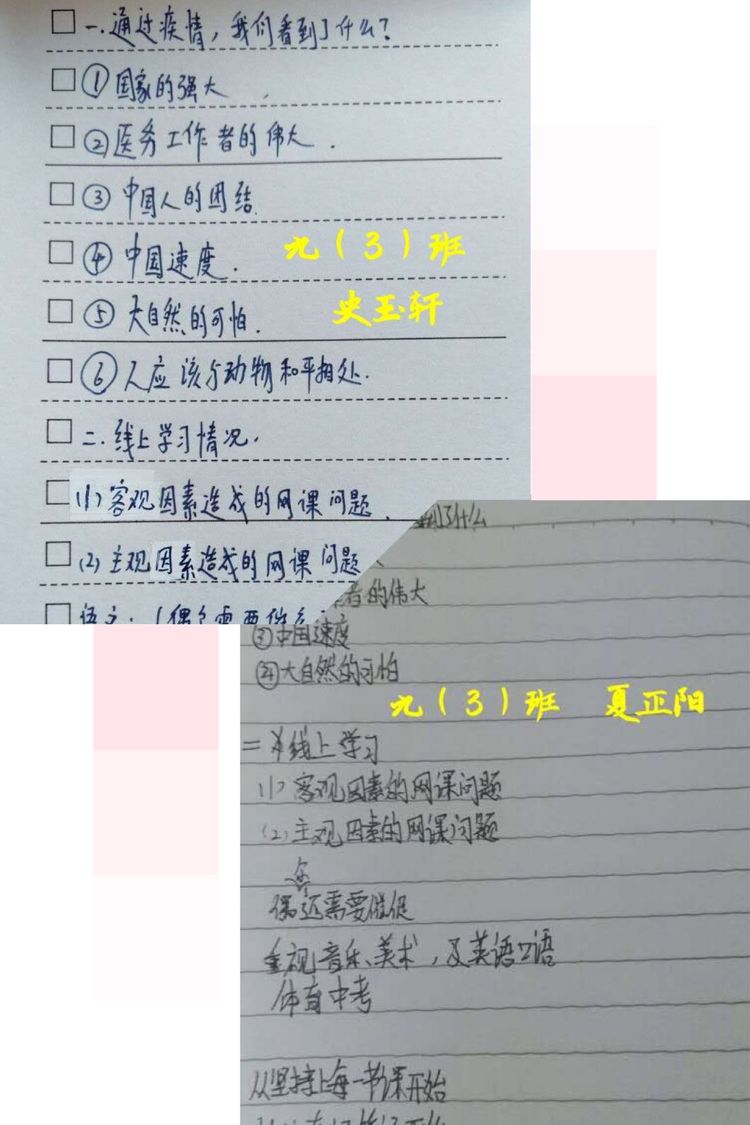 一.通过疫情，我们看到了什么？
①国家的强大
②医务工作者的伟大.
③中国人的团结
④中国速度.
九（3）班
⑤大自然的可怕.
史玉轩
⑥人应该与动物和平相处.
二.线上学习情况.
(1)客观因素造成的网课问题.
(2)主观因素造成的网课问题
到了什么
者的伟大
③中国速度
④大自然的可怕
九（3）班 夏正阳
二 线上学习
(1)客观因素的网课问题
(2)主观因素的网课问题
偶还需要催促
重视音乐、美术，及英语口语
体育中考
从坚持上每一节课开始